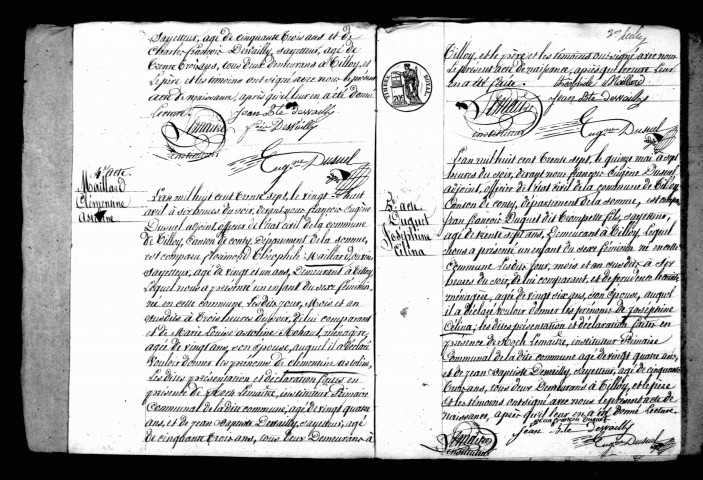 sayetteur, agé de cinquante trois ans et de
Charles François Dewailly, sayetteur, agé de
trente trois ans, tous deux demeurans à Tilloy, et
le père et les témoins ont signé avec nous le présent
acte de naissance, après qu'il leur en a été donné
lecture.
Jean Bte Dewailly
Lemaitre
instituteur
fois Dewailly
Eugne Dusuel
4e acte
Maillard
Clémentine
L'an mil huit cent trente sept, le vingt huit
avril à six heures du soir, devant nous françois Eugène
Dusuel adjoint, officier de l'état civil de la commune
de Tilloy, Canton de conty, Département de la somme,
est comparu florimond théophile Maillard
sayetteur, agé de vingt un ans, demeurant à Tilloy,
lequel nous a présenté un enfant du sexe féminin,
né en cette commune lesdits jour, mois et an
susdits à trois heures du soir, de lui comparant
et de Marie Louise Mohaut, ménagère,
agée de vingt ans, son épouse, auquel il a déclaré
vouloir donner les prénoms de Clémentine
les dites présentation et déclaration faites en
présence de Roch Lemaitre, instituteur Primaire
Communal de la dite commune, agé de vingt quatre
ans, et de jean Baptiste Dewailly, sayetteur, agé de
cinquante trois ans, tous deux Demeurans à
TIMBRE ROYAL
Tilloy, et le père et les témoins ont signé avec nous
le présent acte de naissance, après que lecture leur
en a été faite.
Maillard
Jean Bte Dewailly
Lemaitre
instituteur
Eugne Dusuel
5e acte
Duquet
Joséphine
Célina
L'an mil huit cent trente sept, le quinze mai à sept
heures du soir, devant nous françois Eugène Dusuel,
adjoint, officier de l'état civil de la commune de Tilloy
Canton de conty, département de la somme, est comparu
jean françois Duquet dit trompette fils, sayetteur,
agé de trente sept ans, demeurant à Tilloy, lequel
nous a présenté un enfant du sexe féminin né en cette
commune lesdits jour, mois et an susdits à sept
heures du soir, de lui comparant, et de prudence
ménagère, agée de vingt six ans, son épouse, auquel
il a déclaré vouloir donner les prénoms de Joséphine
Célina, les dites présentation et déclaration faites en
présence de Roch Lemaitre, instituteur Primaire
Communal de la dite commune agé de vingt quatre ans,
et de jean Baptiste Dewailly, sayetteur, agé de cinquante
trois ans, tous deux Demeurans à Tilloy, et le père
et les témoins ont signé avec nous le présent acte de
naissance, après qu'il leur en a été donné lecture.
jean francois Duquet
Lemaitre
instituteur
Jean Bte Dewailly
Eugne Dusuel